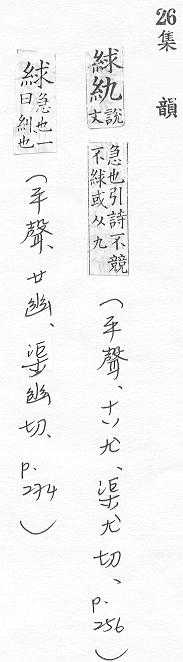 26集韻
絿紈說文急也引詩不競不絿或从九(平聲、十八尤、渠尤切、p.256)
絿急也一曰糾也(平聲、廿幽、渠幽切、p.274)